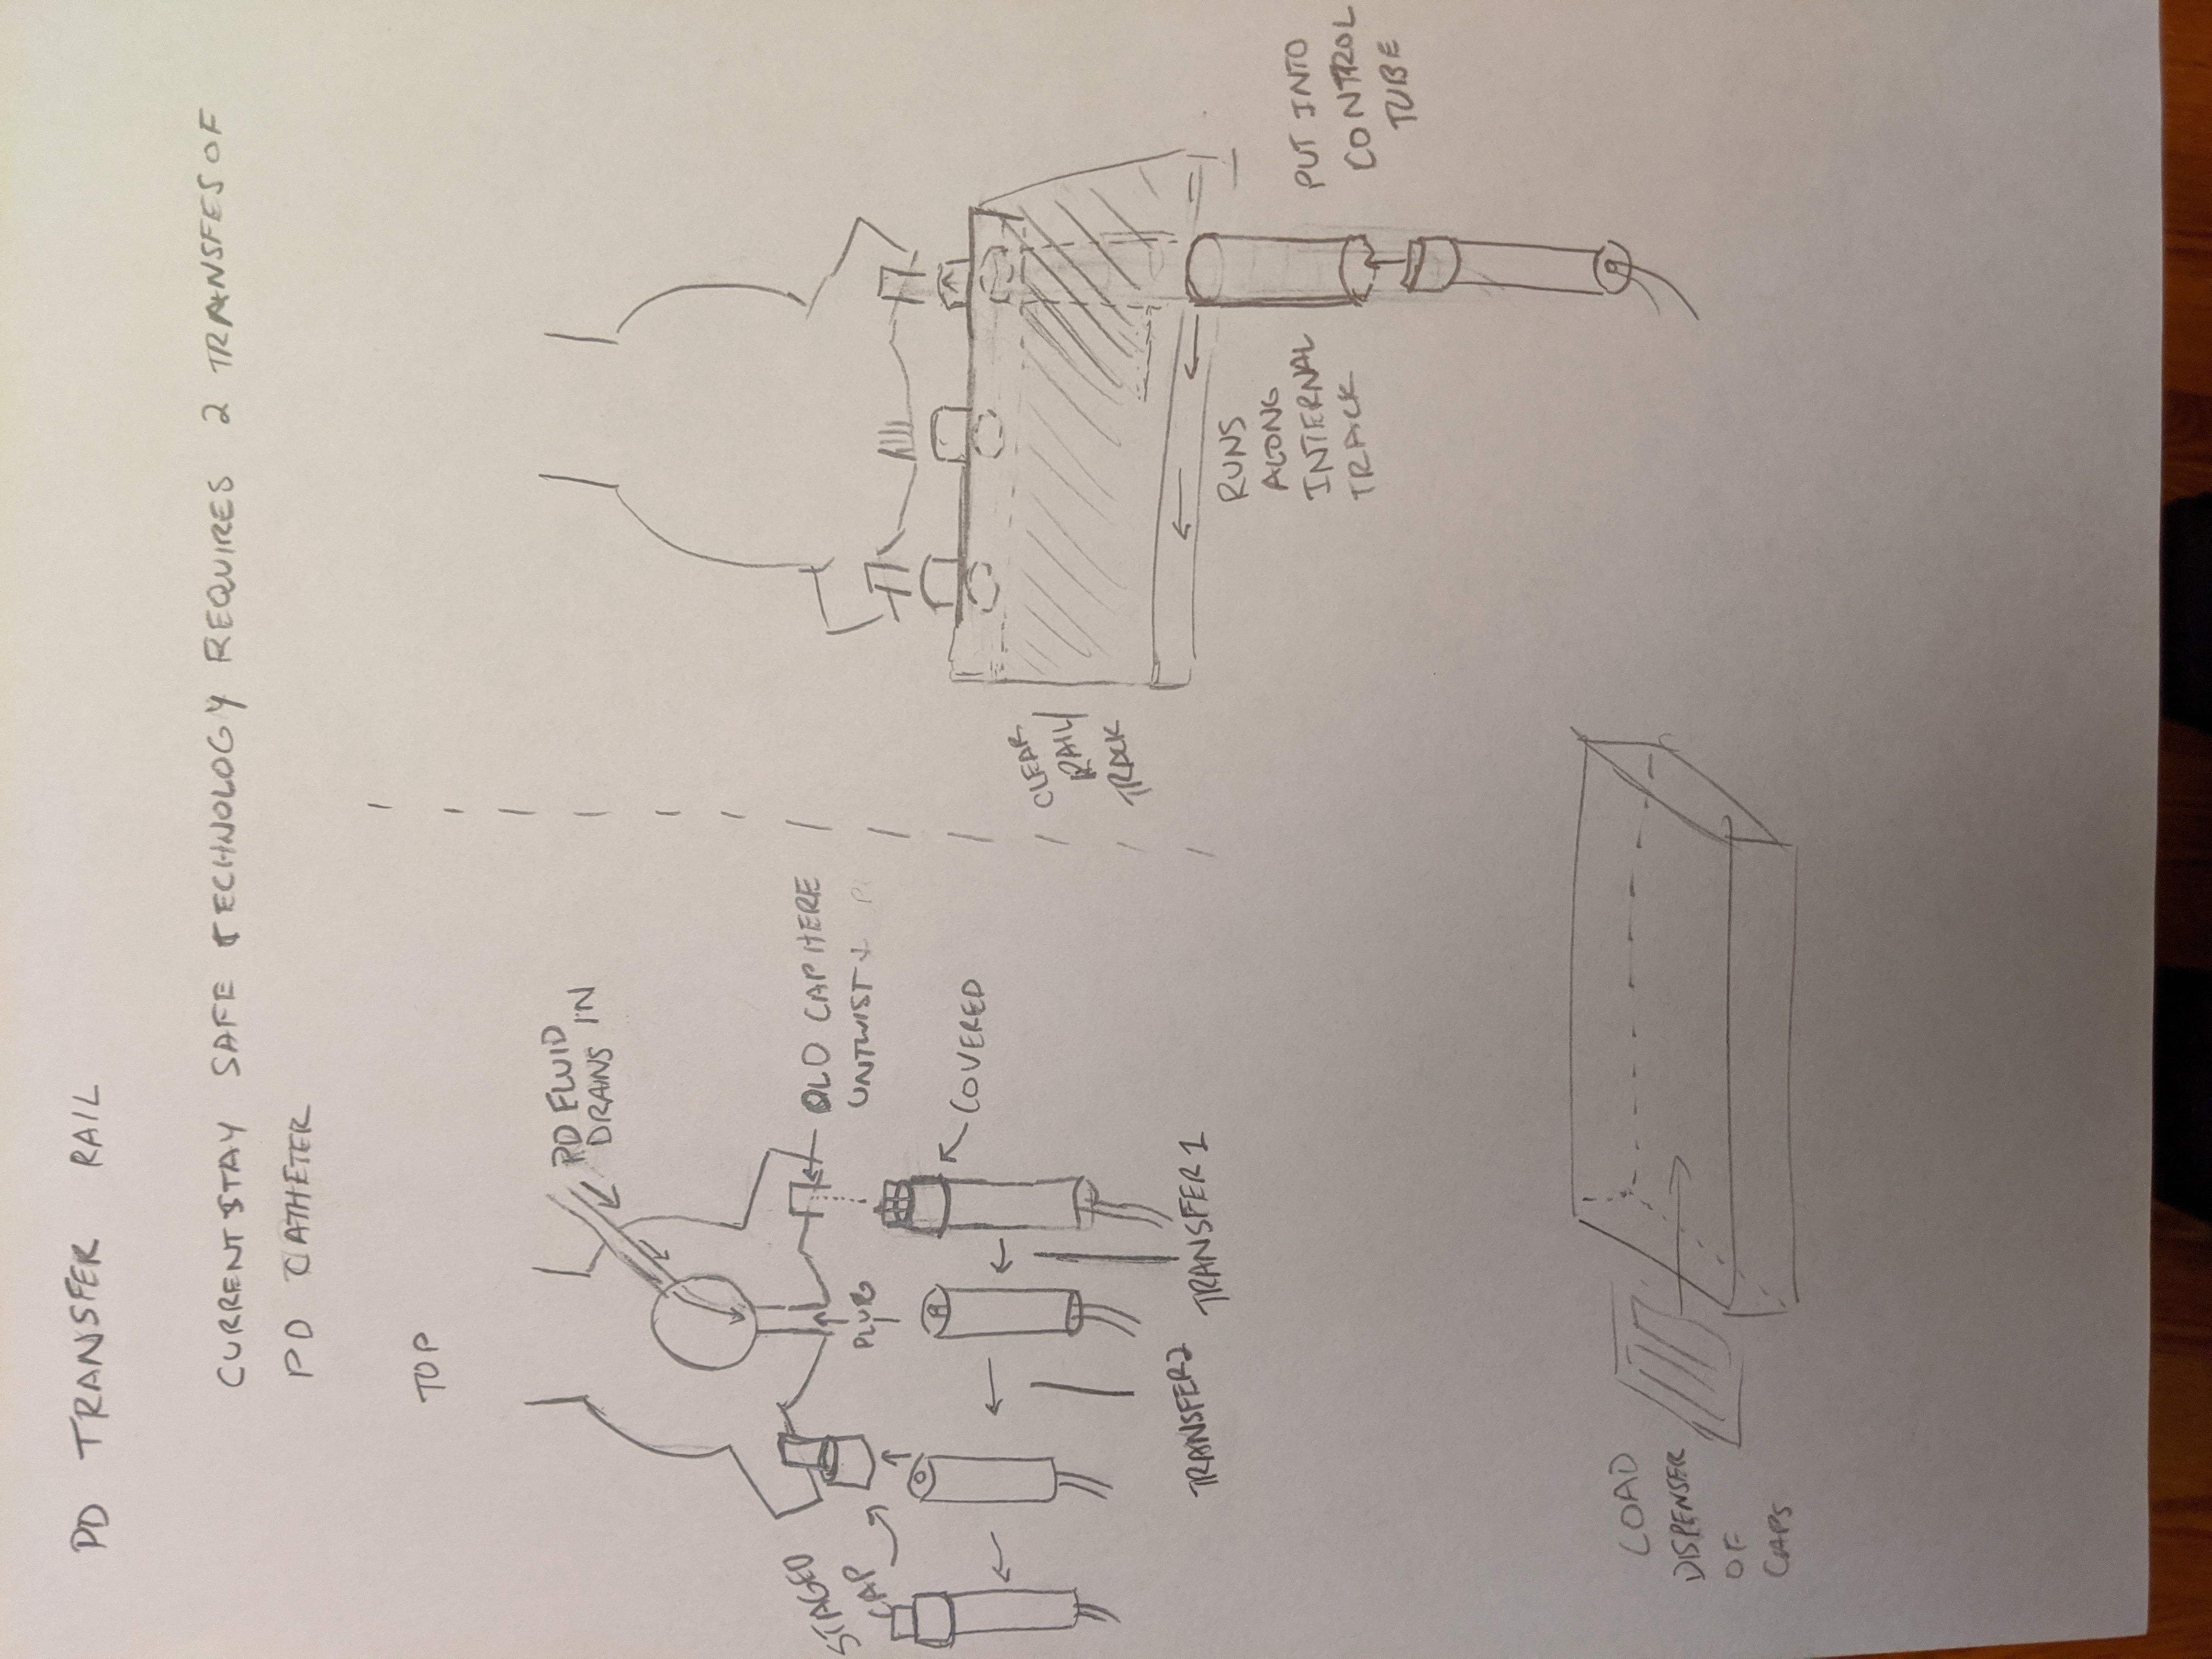 PD TRANSFER RAIL
CURRENT STAY SAFE TECHNOLOGY REQUIRES 2 TRANSFES OF
PD CATHETER
TOP
PD FLUID
DRAINS IN
STAGED
CAP
PLUG
OLD CAP HERE
UNTWIST +
COVERED
TRANSFER 2
TRANSFER 1
CLEAR
RAIL/
TRACK
RUNS
ALONG
INTERNAL
TRACK
PUT INTO
CONTROL
TUBE
LOAD
DISPENSER
OF
CAPS